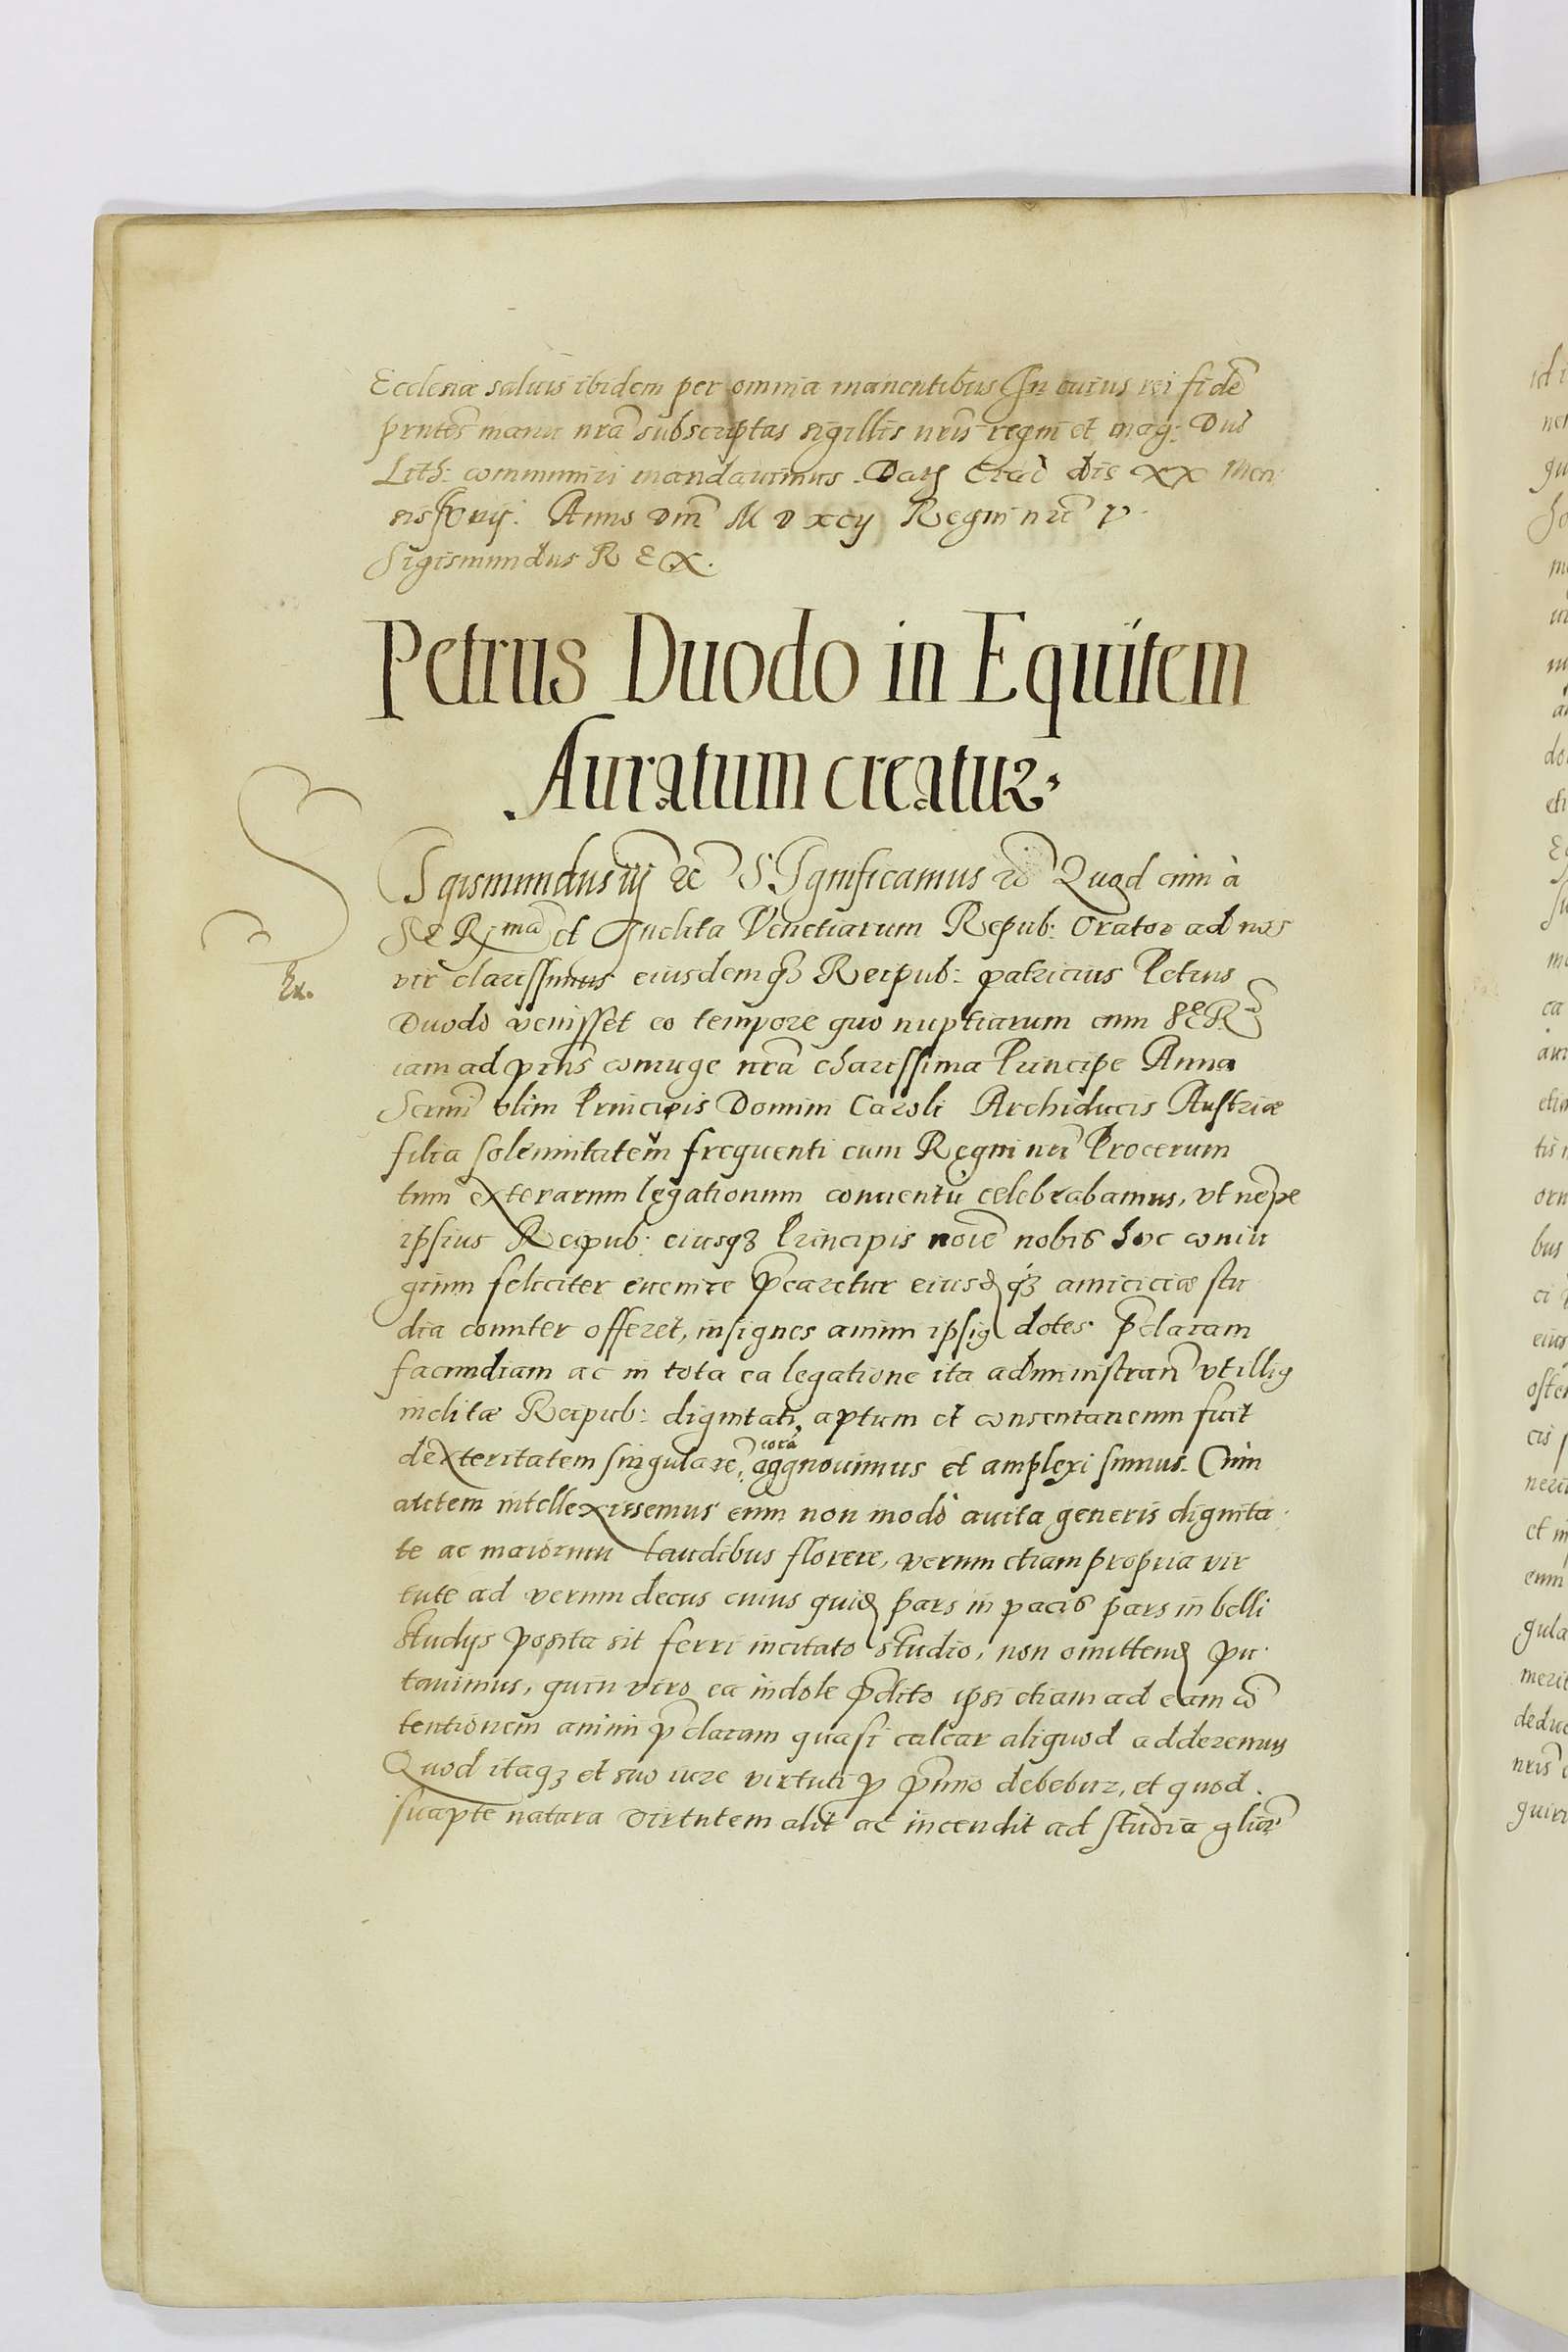 Ecclesiæ saluis ibidem per omnia manentibus In cuius rei fidē
prntes manu nrã subscriptas sigillis nris regni et mag: Duc
Lith: communiri mandauimus. Dat Crac die XX Men
sis Anno Dni M D xcij Regni nri v.
Sigismundus REX.
Petrus Duodo in Equitem
Auratum creatur.
SIgismundus iij &c SIgnificamus &c Quod cum à
SeRma et Inclita Venetiarum Repub: Orator ad nos
vir clarissimus eiusdemq3 Reipub: patricius Petrus
Ex.
Duodo venisset eo tempore quo nuptiarum cum SeR
iam ad prns coniuge nrã charissima Principe Anna
Sermi olim Principis Domini Caroli Archiducis Austriæ
filia solemnitatem frequenti cum Regni nri Procerum
tum exterarum legationum conuentu celebrabamus, vt nēpe
ipsius Reipub: eiusq3 Principis noiē nobis hoc coniu
gium feliciter euenire p̄caretur eiusdq3 amiciciæ stu
dia comiter offeret, insignes animi ipsi9 dotes p̄claram
facundiam ac in tota ea legatione ita administran vt illi9
inclitæ Reipub: dignitati, aptum et consentaneum fuit
dexteritatem singularē, corã aggnouimus et amplexi sumus. Cum
autem intellexissemus eum non modò auita generis dignita
te ac maiorum laudibus florere, verum etiam propria vir
tute ad verum decus cuius quid pars in pacis pars in belli
studijs posita sit ferri incitato studio, non omittend pu
tauimus, quin viro ea indole p̄dito ipsi etiam ad eam cō
tentionem animi p̄claram quasi calcar aliquod adderemus
Quod itaq3 et suo iure virtuti p p̄mio debebur, et quod
suapte natura virtutem alit ac incendit ad studia glior